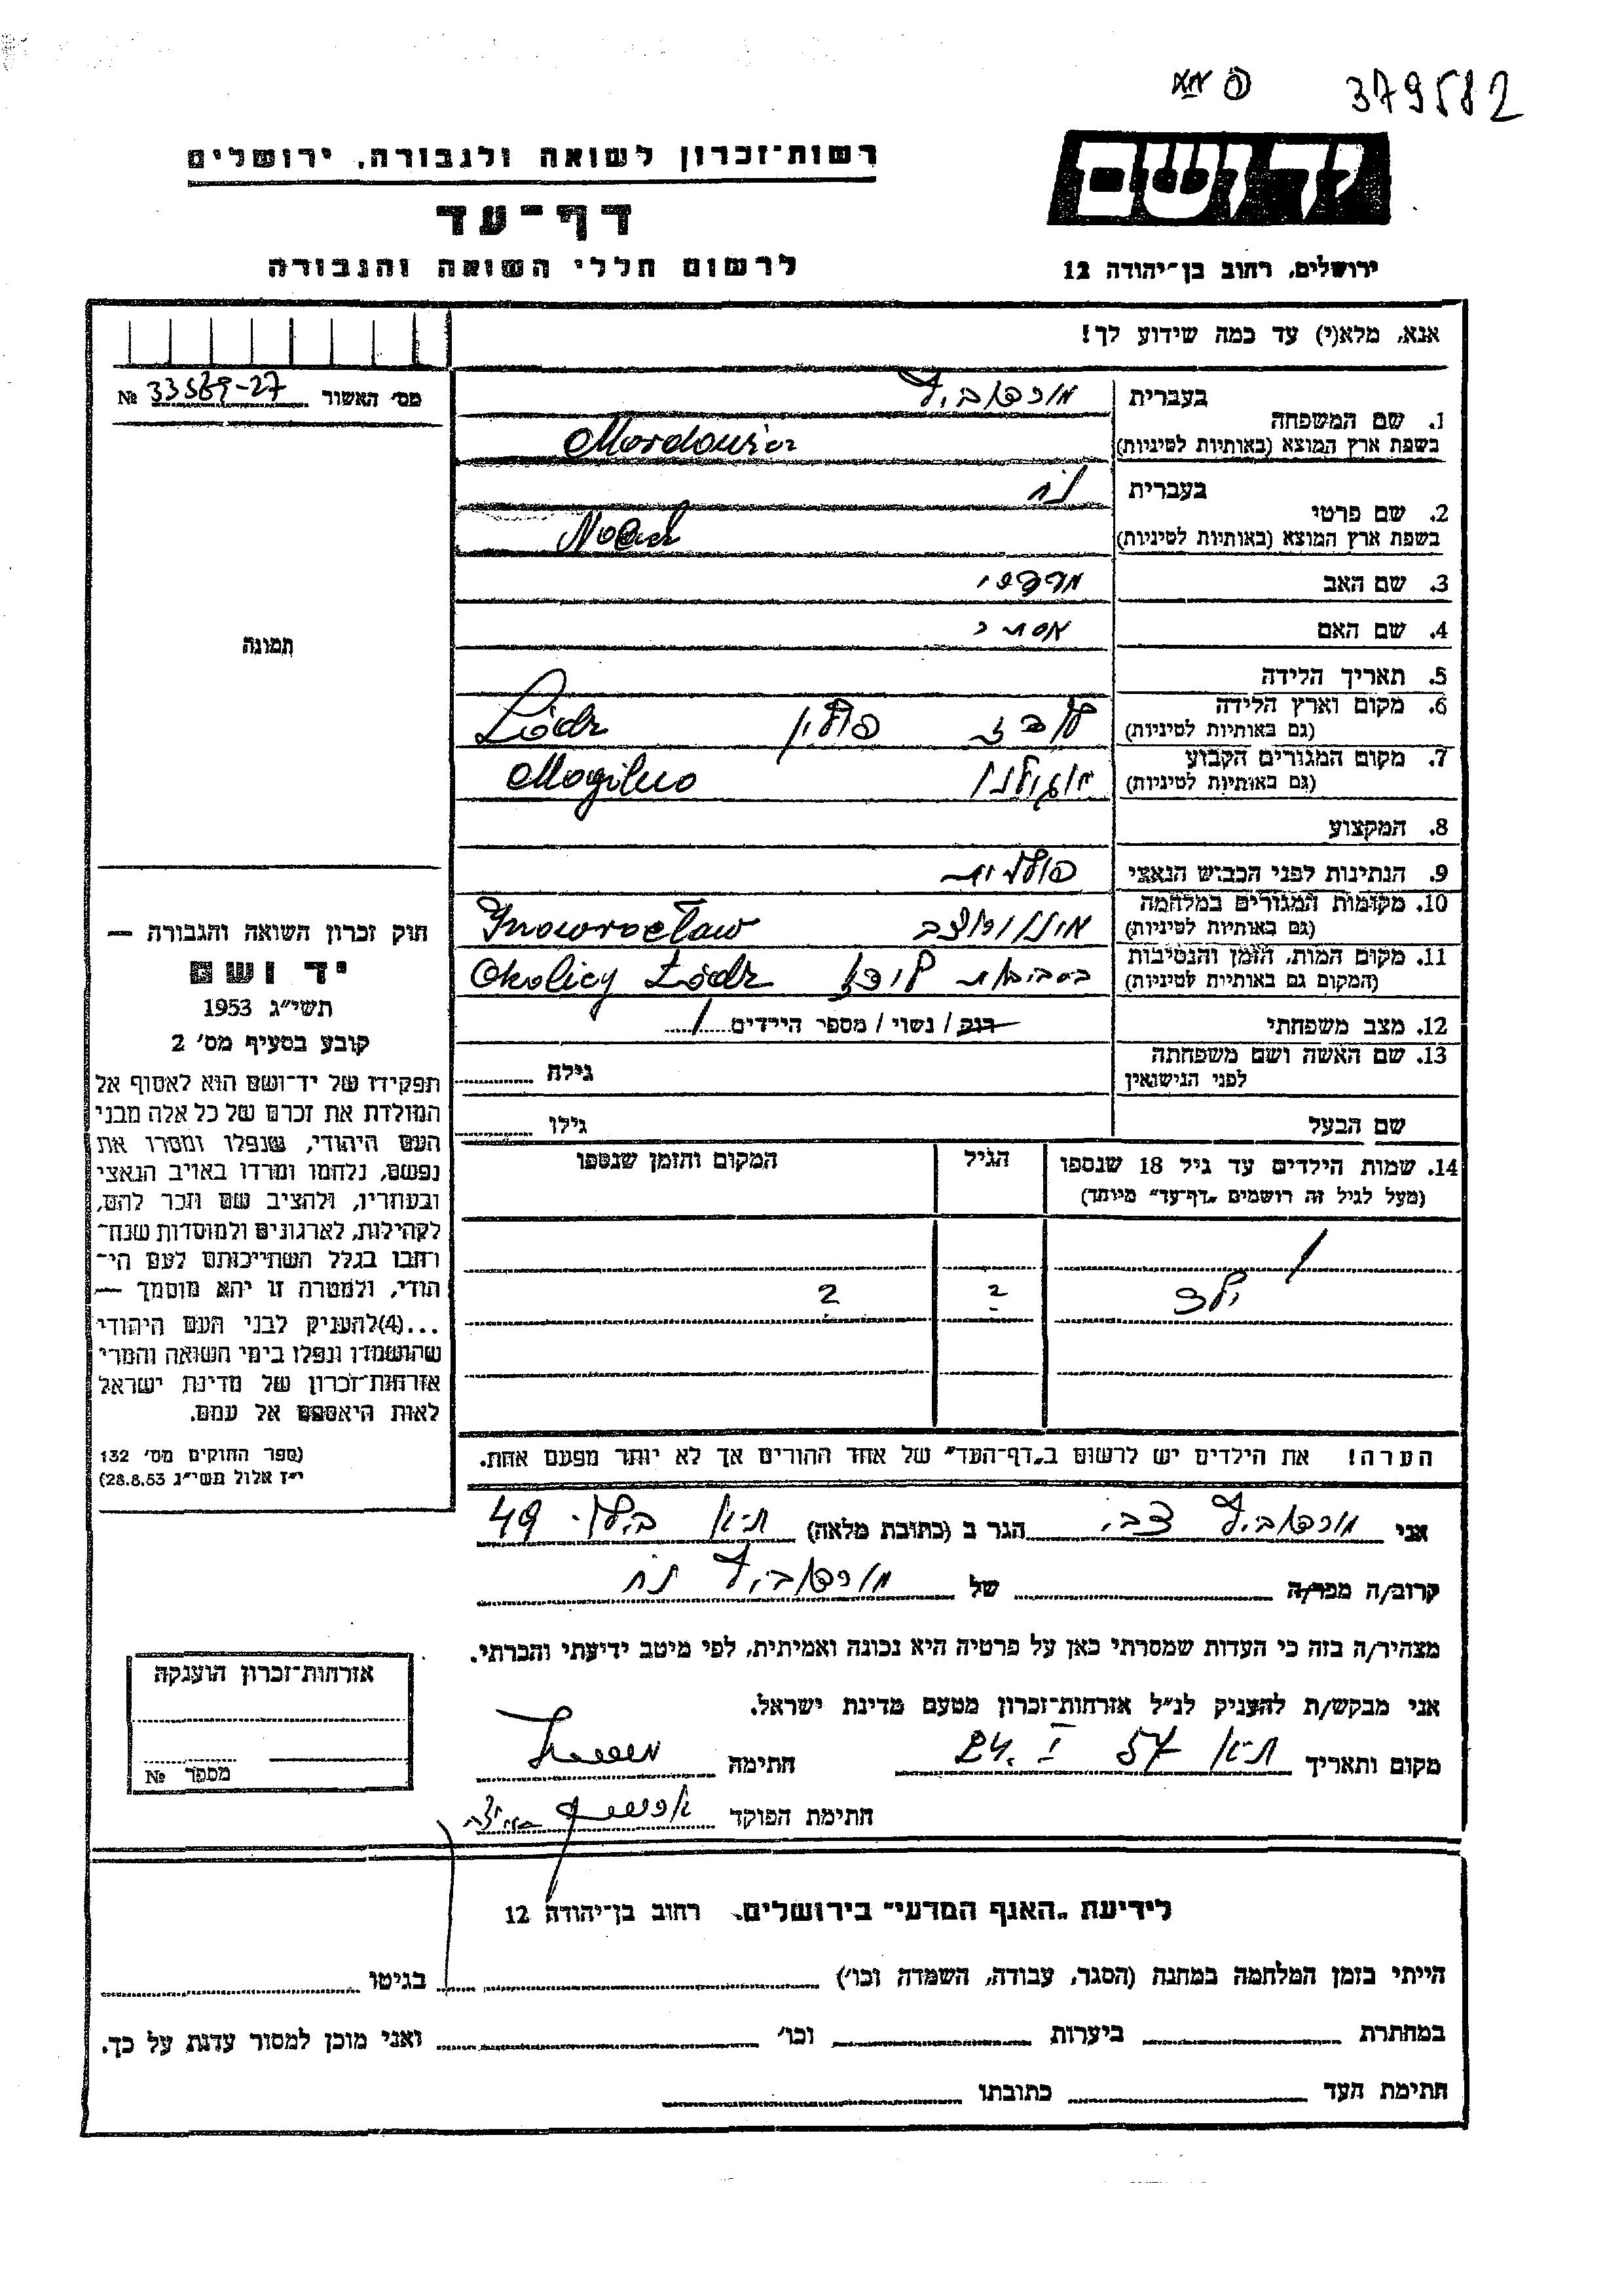 379582
רשות־זכרון לשואה ולגבורה, ירושלים
יד ושם
דף־עד
לרשום חללי השואה והגבורה
ירושלים, רחוב בן־יהודה 12
אנא, מלא(י) עד כמה שידוע לך!
מס׳ האשור № 33589-27
1. שם המשפחה
בעברית
בשפת ארץ המוצא (באותיות לטיניות)
2. שם פרטי
בעברית נח
בשפת ארץ המוצא (באותיות לטיניות) Noach
3. שם האב מרדכי
4. שם האם
5. תאריך הלידה
6. מקום וארץ הלידה
(גם באותיות לטיניות) לודז פולין Łódz
7. מקום המגורים הקבוע
(גם באותיות לטיניות) Mogilno
8. המקצוע
9. הנתינות לפני הכבוש הנאצי פולנית
10. מקומות המגורים במלחמה
(גם באותיות לטיניות) Inowrocław
11. מקום המות, הזמן והנסיבות
(המקום גם באותיות לטיניות) בסביבות לודז Okolicy Łódz
12. מצב משפחתי רווק / נשוי / מספר הילדים 1
13. שם האשה ושם משפחתה
לפני הנישואין גילה
שם הבעל גילו
14. שמות הילדים עד גיל 18 שנספו הגיל המקום והזמן שנספו
(מעל לגיל זה רושמים „דף־עד״ מיוחד)
1
ילד 2 2
הערה! את הילדים יש לרשום ב„דף־העד״ של אחד ההורים אך לא יותר מפעם אחת.
תמונה
חוק זכרון השואה והגבורה —
יד ושם
תשי״ג 1953
קובע בסעיף מס׳ 2
תפקידו של יד־ושם הוא לאסוף אל
המולדת את זכרם של כל אלה מבני
העם היהודי, שנפלו ומסרו את
נפשם, נלחמו ומרדו באויב הנאצי
ובעוזריו, ולהציב שם וזכר להם,
לקהילות, לארגונים ולמוסדות שנח־
רחבו בגלל השתייכותם לעם הי־
הודי, ולמטרה זו יהא מוסמך —
...(4)להעניק לבני העם היהודי
שהושמדו ונפלו בימי השואה והמרי
אזרחות־זכרון של מדינת ישראל
לאות היאספם אל עמם.
(ספר החוקים מס׳ 132
י״ז אלול תשי״ג 28.8.53)
אני צבי הגר ב (כתובת מלאה) ת״א 49
קרוב/ה מכר/ה של נח
מצהיר/ה בזה כי העדות שמסרתי כאן על פרטיה היא נכונה ואמיתית, לפי מיטב ידיעתי והכרתי.
אני מבקש/ת להעניק לנ״ל אזרחות־זכרון מטעם מדינת ישראל.
מקום ותאריך ת״א 24. I 57 חתימה
חתימת הפוקד
אזרחות־זכרון הוענקה
מספר №
לידיעת „האגף המדעי״ בירושלים, רחוב בן־יהודה 12
הייתי בזמן המלחמה במחנה (הסגר, עבודה, השמדה וכו׳) בגיטו
במחתרת ביערות וכו׳ ואני מוכן למסור עדות על כך.
חתימת העד כתובתו